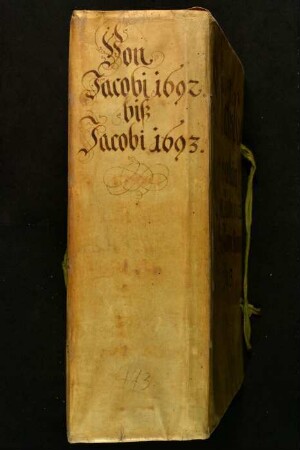 Von
Jacobi 1692.
biß
Jacobi 1693.
113